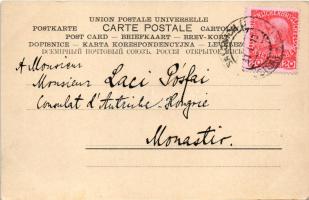 UNION POSTALE UNIVERSELLE
POSTKARTE CARTE POSTALE CARTOLINA
POST CARD — BRIEFKAART — BREV-KORT
DOPISNICE — KARTA KORESPONDENCYJNA —
ВСЕМІРНЫЙ ПОЧТОВЫЙ СОЮЗЪ. РОССІЯ ОТКРЫТОЕ
20 20
A Monsieur
Monsieur Laci Posfai
Consulat d'Autriche-Hongrie
Monastir.